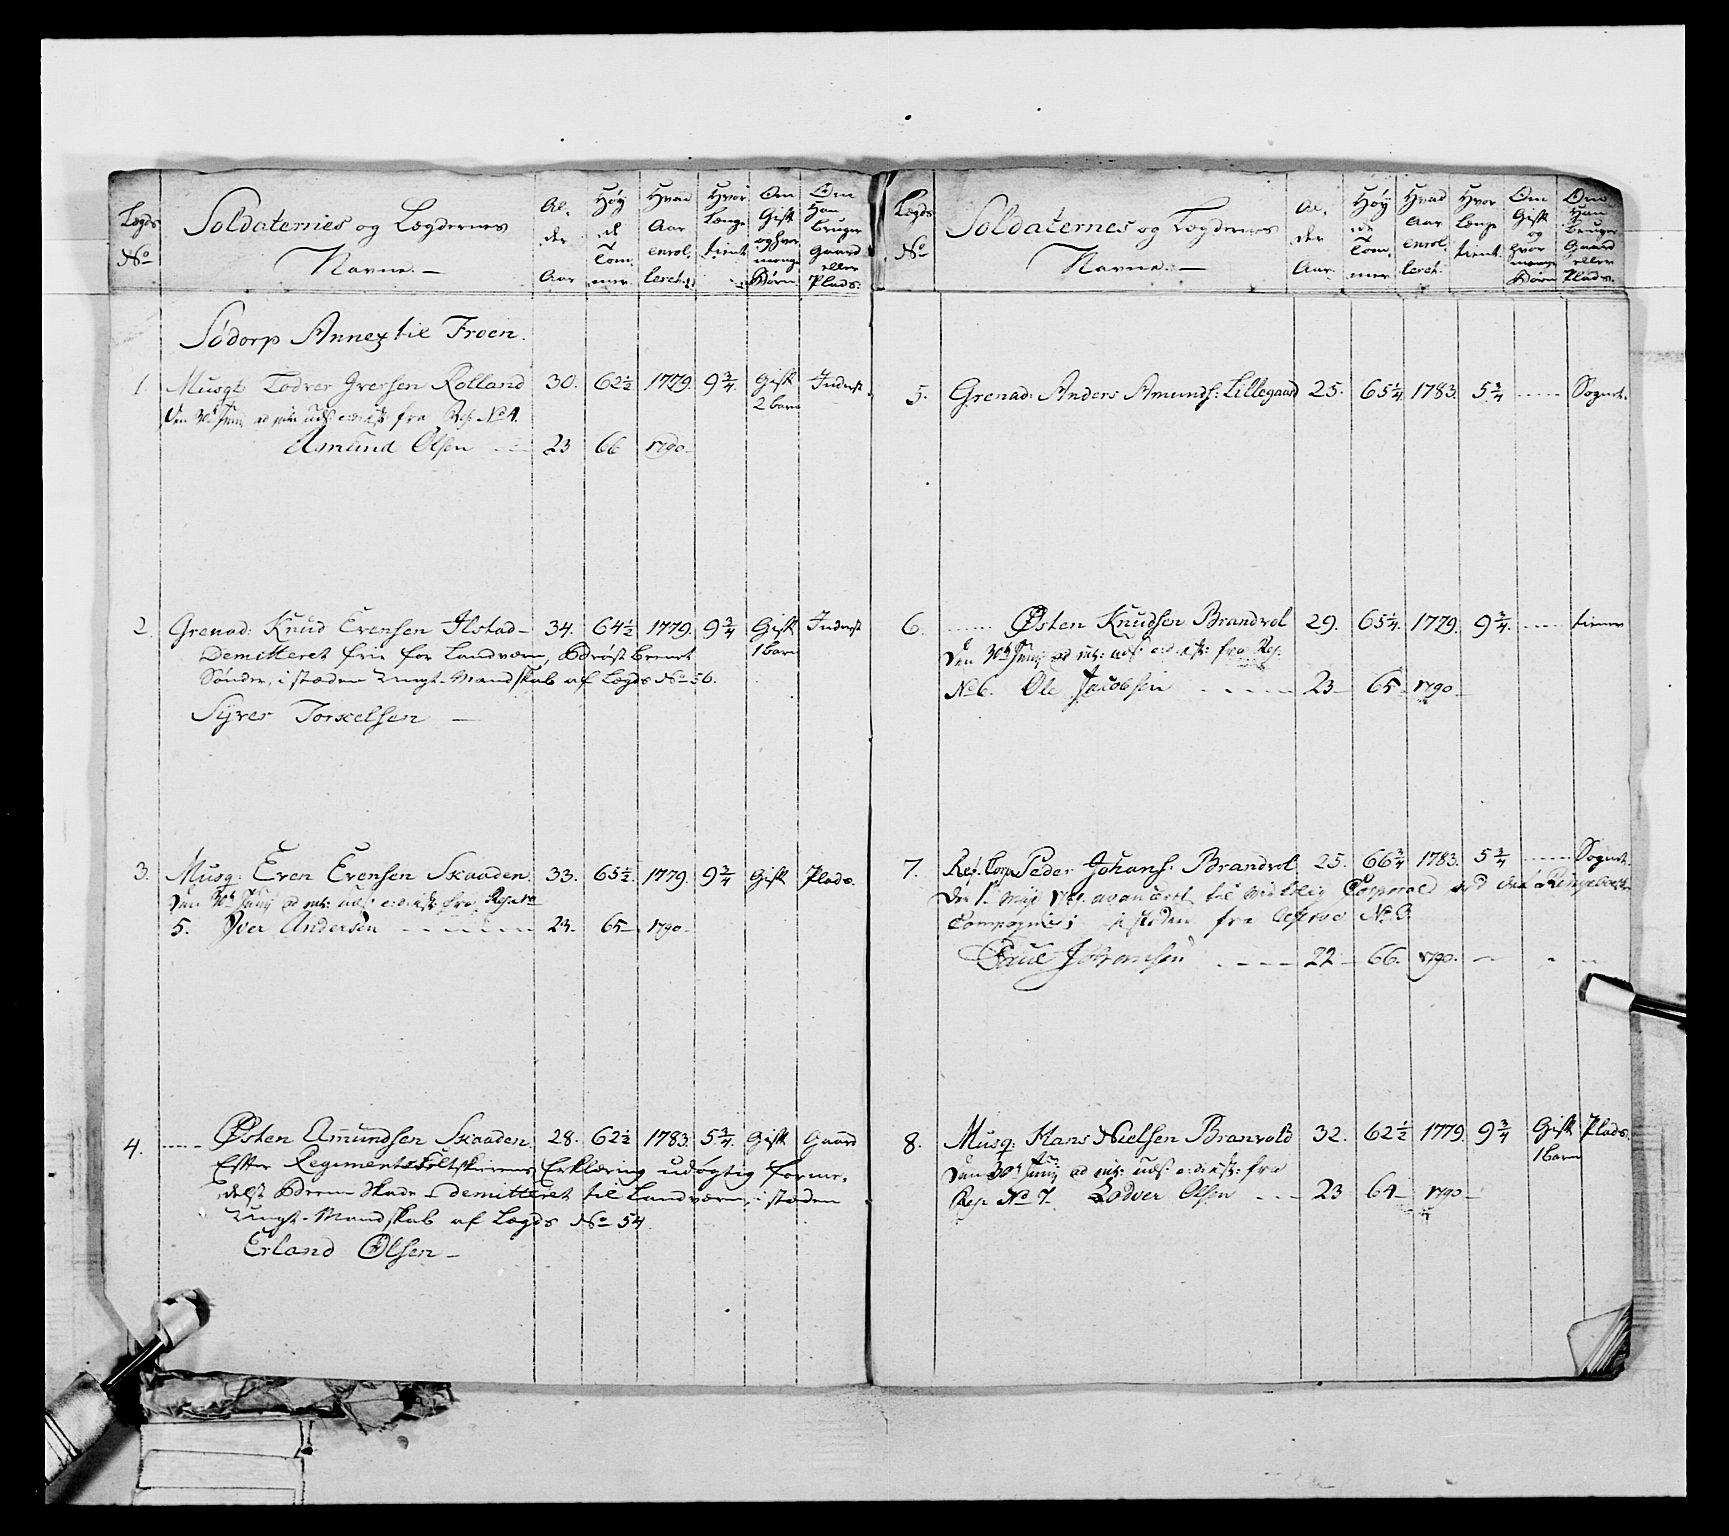 Lægds No
Soldaternes og Lægdernes Navne.
Al, der Aar
Høy de Tom, mer
Hvad Aar enrol, leret.
Hvor længe tient
Om Gift og hvor mange Børn
Om Han bruger Gaard eller Plads.
Sødorp Annex til Froen.
1. Musqt: Todver Iversen Rolland 30. 62½ 1779. 9¾. Gift 2 børn Inderst
fra Rep. No 4.
Amund Olsen 23 66 1790.
2. Grenad: Knud Evensen Ilstad 34. 64½ 1779. 9¾ Gift 1 barn Inderst
Demitteret frie for Landværn,
i stæden ungt Mandskab af Lægds No 56.
Syver Torkelsen
3. Musq: Even Evensen Skaaden. 33. 65½. 1779. 9¾ Gift Plads.
5. Iver Andersen 23. 65 1790.
4. Østen Amundsen Skaaden 28. 62½ 1783 5¾. Gift Gaard
Efter Regiments Feltskierens Erklæring udøgtig forme,
delst demitteret til Landværn, i stæden
ungt Mandskab af Lægds No 54.
Erland Olsen
Lægds No
Soldaternes og Lægdernes Navne.
Al, der Aar.
Høy de Tom, mer
Hvad Aar enrol, leret.
Hvor længe tient.
Om Gift og hvor mange Børn
Om Han bruger Gaard eller Plads.
5. Grenad: Anders Amunds: Lillegaard 25. 65¼ 1783. 5¾ Sognet.
6. Østen Knudsen Brandvol 29. 65¼. 1779. 9¾. tiener
fra Rep.
No 6. Ole Jacobsen 23 65 1790
7. Ref. Corp. Peder Johans: Brandvol 25. 66¾ 1783. 5¾ Sognet.
Den 1. Maji avanceret til virkelig Corporal ved det Ringeboeske
Compagnie; i stæden fra Reserve No 3
Poul Johansen 22 66. 1790.
8. Musq: Hans Nielsen Branvold 32. 62½ 1779 9¾ Gift 1 barn Plads.
fra
Rep. No 7. Lodver Olsen 23 64 1790